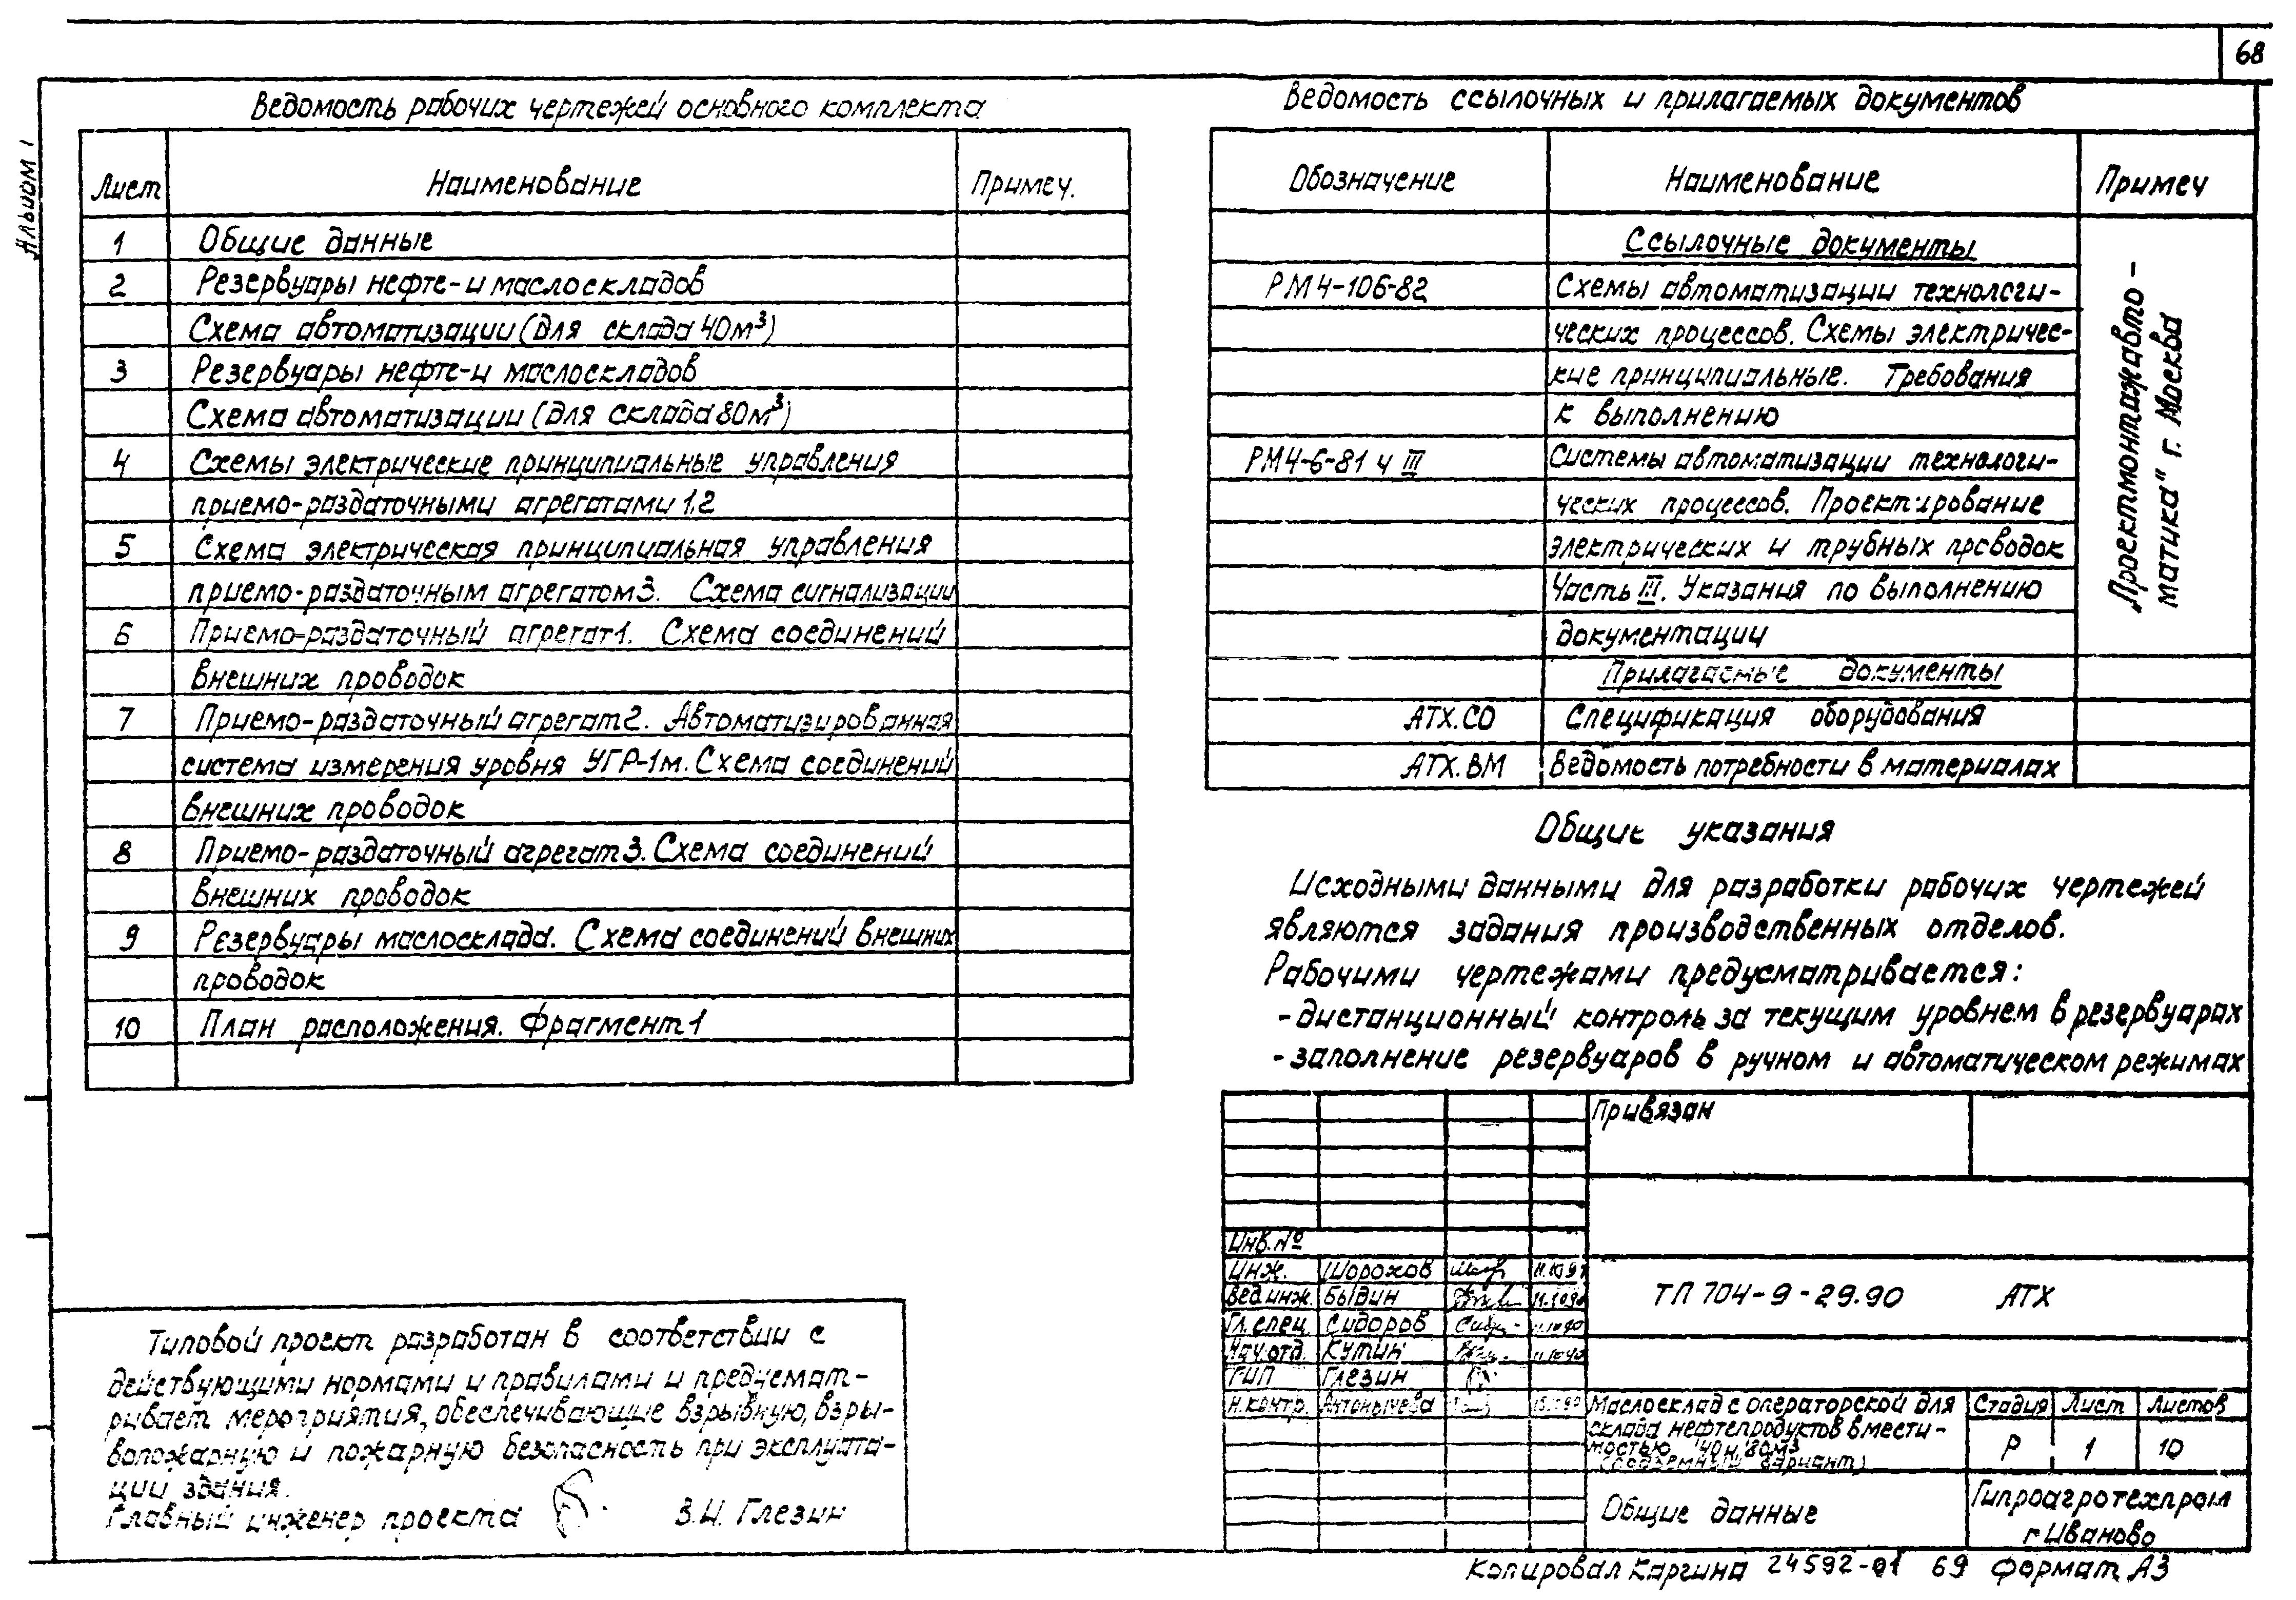 68
Альбом 1
Ведомость рабочих чертежей основного комплекта
Лист Наименование Примеч.
1 Общие данные
2 Резервуары нефте- и маслоскладов
Схема автоматизации (для склада 40м³)
3 Резервуары нефте-и маслоскладов
Схема автоматизации (для склада 80м³)
4 Схемы электрические принципиальные управления
приемо-раздаточными агрегатами 1,2
5 Схема электрическая принципиальная управления
приемо-раздаточным агрегатом 3. Схема сигнализации
6 Приемо-раздаточный агрегат 1. Схема соединений
внешних проводок
7 Приемо-раздаточный агрегат 2. Автоматизированная
система измерения уровня УГР-1м. Схема соединений
внешних проводок
8 Приемо-раздаточный агрегат 3. Схема соединений
внешних проводок
9 Резервуары маслосклада. Схема соединений внешних
проводок
10 План расположения. Фрагмент 1
Ведомость ссылочных и прилагаемых документов
Обозначение Наименование Примеч
Ссылочные документы
РМ4-106-82 Схемы автоматизации технологи-
ческих процессов. Схемы электричес-
кие принципиальные. Требования
к выполнению
РМ4-6-81 ч III Системы автоматизации технологи-
ческих процессов. Проектирование
электрических и трубных проводок
Часть III. Указания по выполнению
документации
Проектмонтажавто-
матика" г. Москва
Прилагаемые документы
АТХ.СО Спецификация оборудования
АТХ.ВМ Ведомость потребности в материалах
Общие указания
Исходными данными для разработки рабочих чертежей
являются задания производственных отделов.
Рабочими чертежами предусматривается:
-дистанционный контроль за текущим уровнем в резервуарах
-заполнение резервуаров в ручном и автоматическом режимах
Типовой проект разработан в соответствии с
действующими нормами и правилами и предусмат-
ривает мероприятия, обеспечивающие взрывную, взры-
вопожарную и пожарную безопасность при эксплуата-
ции здания.
Главный инженер проекта З.И. Глезин
Привязан
Инв.№
Инж. Шорохов
Вед.инж. Быдин
Гл.спец. Сидоров
Нач.отд. Кутин
ГИП Глезин
Н.контр. Антонычева
ТП 704-9-29.90 АТХ
Маслосклад с операторской для
склада нефтепродуктов вмести-
мостью 40 и 80м3
(подземный вариант)
Стадия Лист Листов
Р 1 10
Общие данные
Гипроагротехпром
г.Иваново
Копировал Каргина 24592-01 69 Формат А3